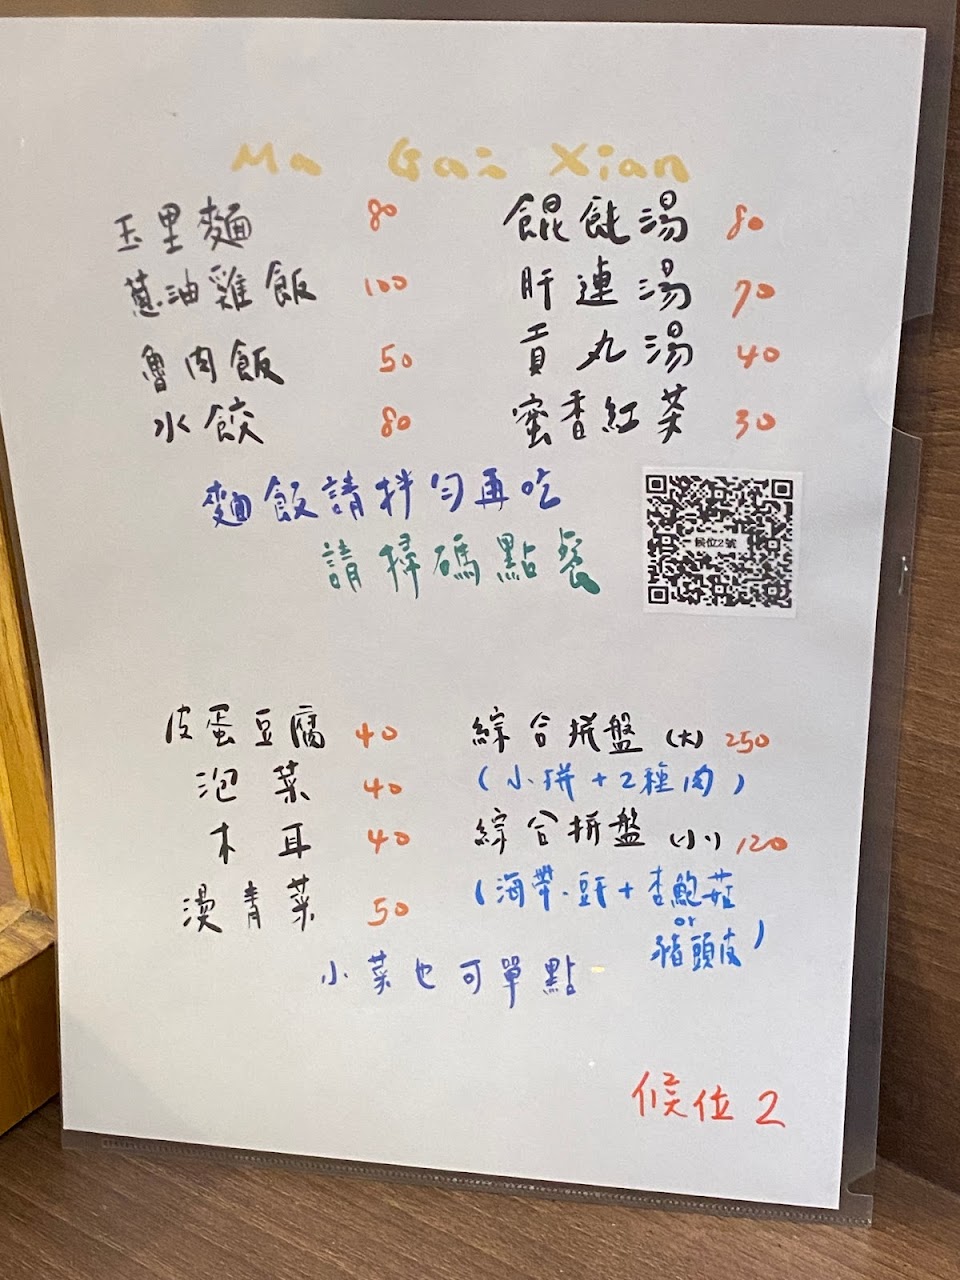 Ma Gai Xian
玉里麵 80
蔥油雞飯 100
魯肉飯 50
水餃 80
餛飩湯 80
肝連湯 70
貢丸湯 40
蜜香紅茶 30
麵飯請拌勻再吃
請掃碼點餐
候位2號
皮蛋豆腐 40
泡菜 40
木耳 40
燙青菜 50
綜合拼盤(大) 250
(小拼+2種肉)
綜合拼盤(小) 120
(海帶.豆干+杏鮑菇
or
豬頭皮)
小菜也可單點
候位2